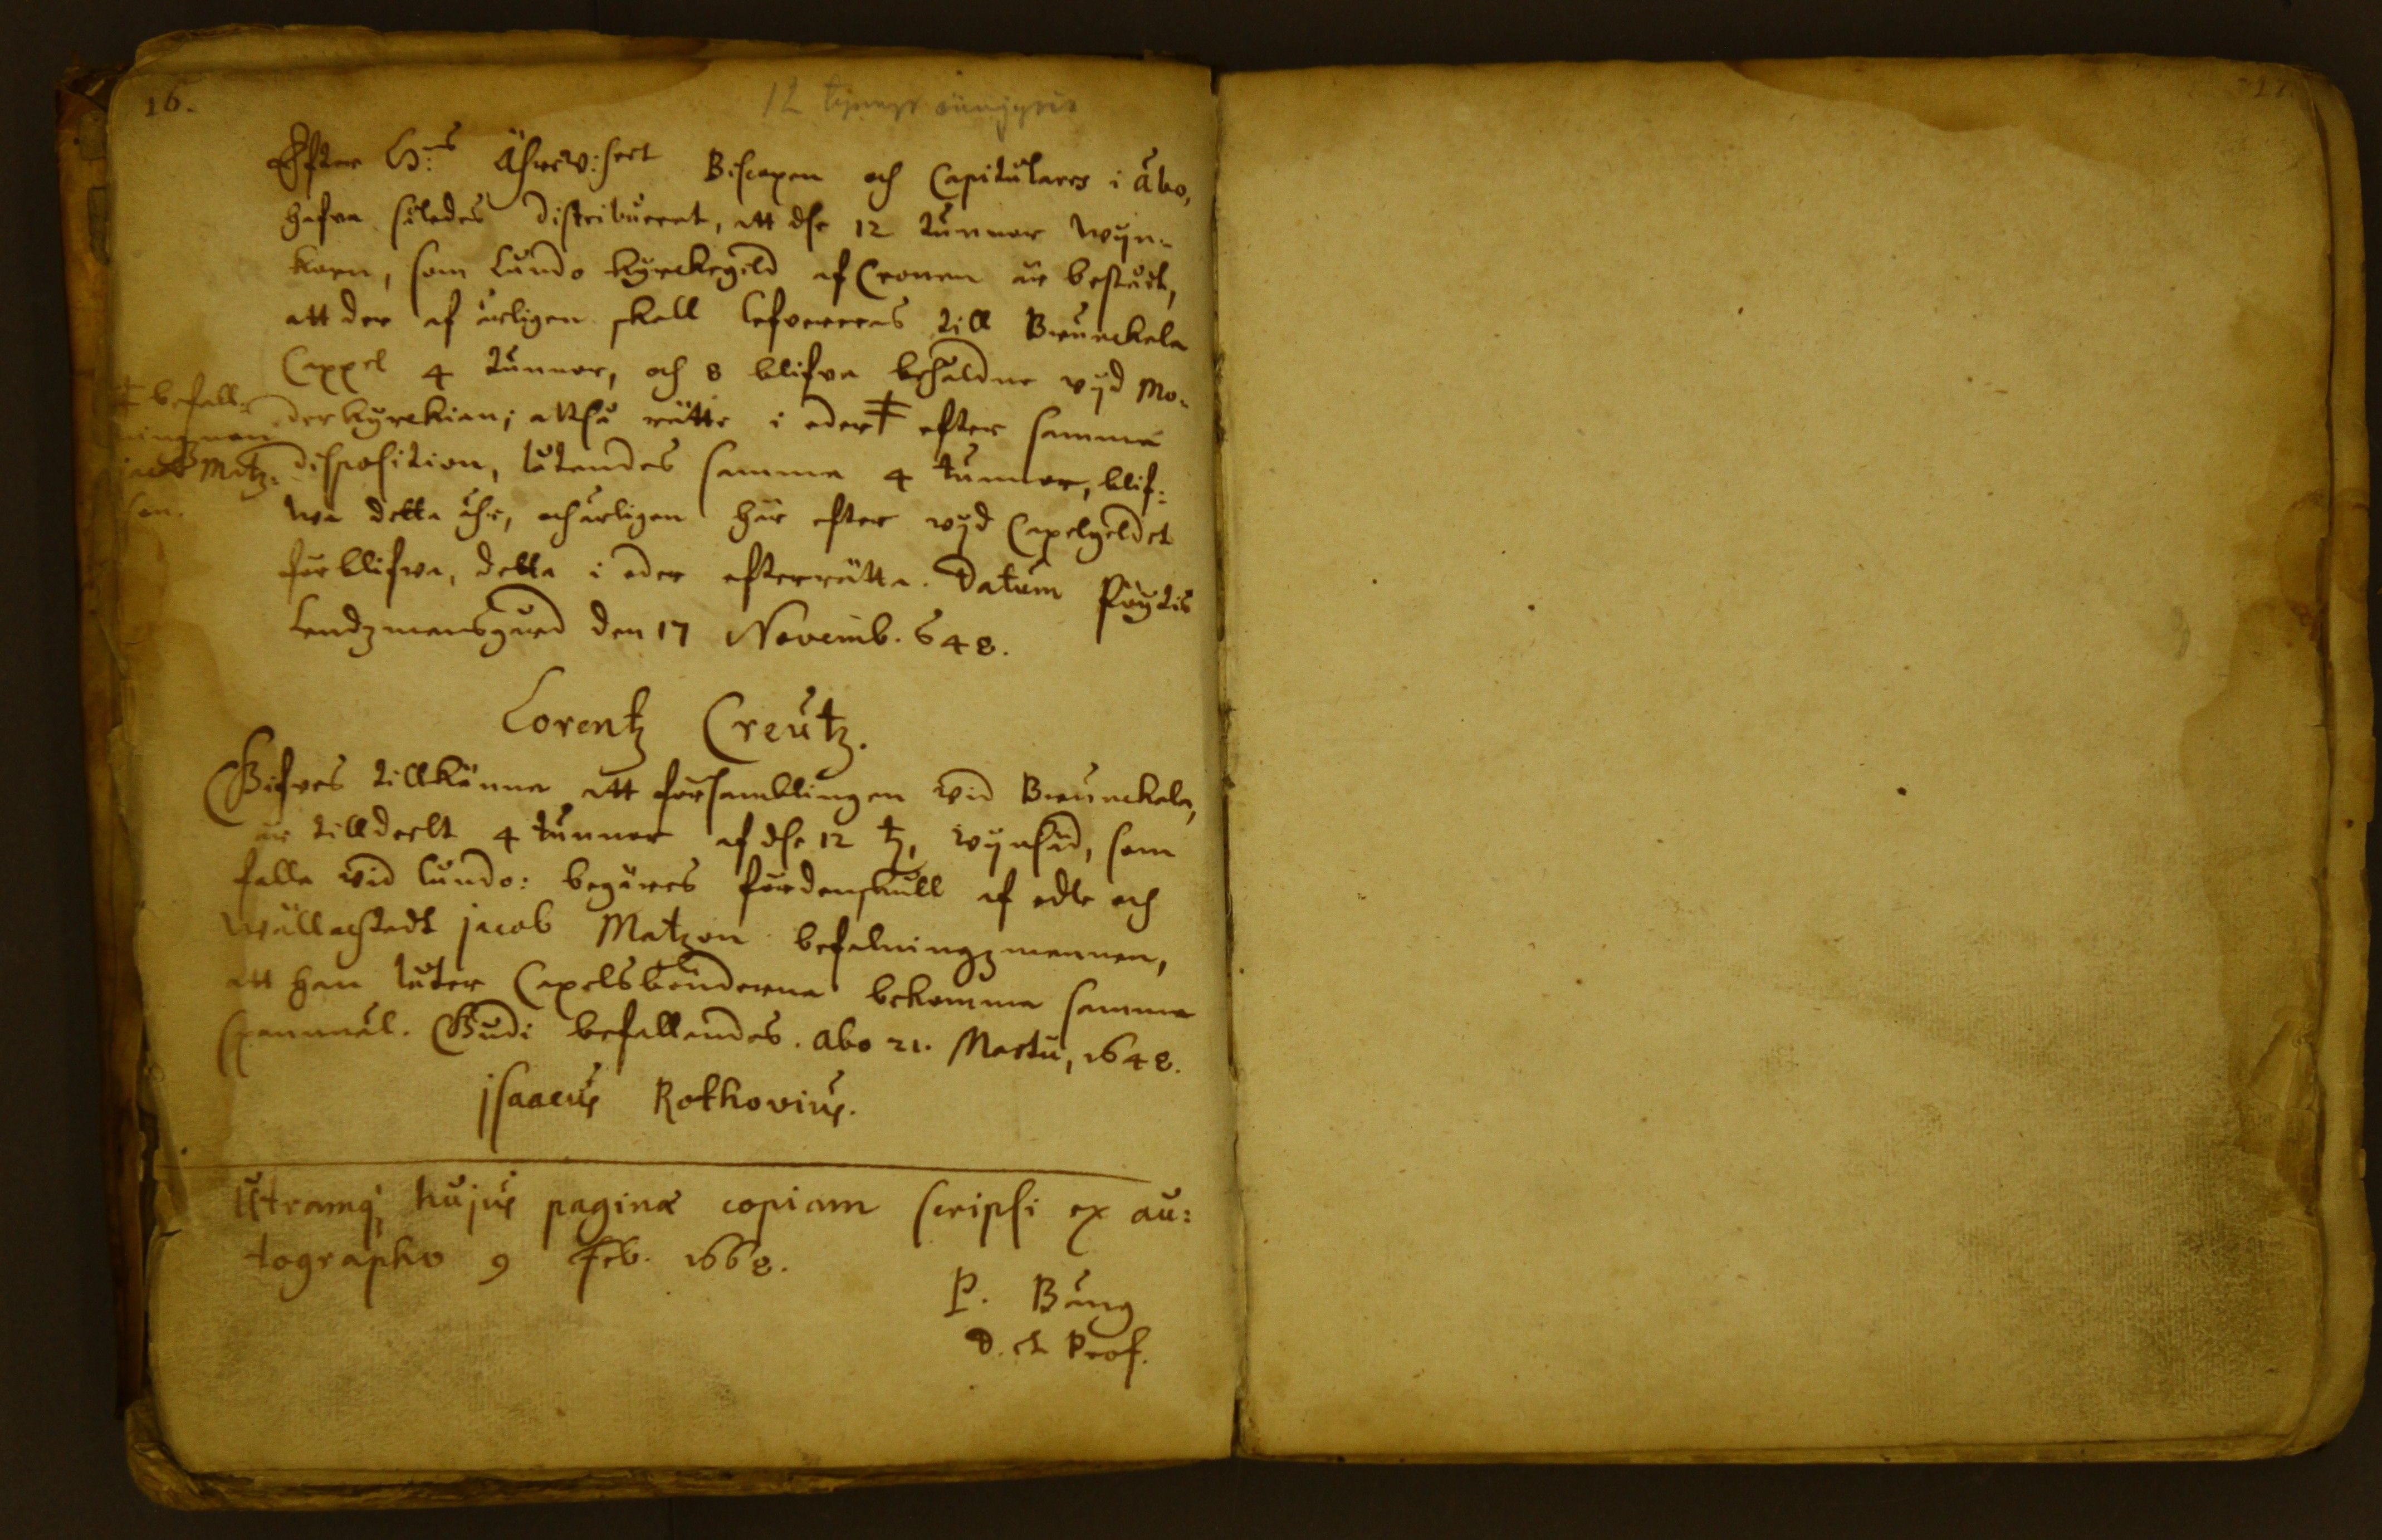 16.
12
Efter H:ns Ährw:heet Biscopen och Capitulares i Åbo,
hafva således distribuerat, att dhe 12 tunnor wijn-
korn, som Lundo kyrckegeld af Cronan är bestådt,
att der af årligen skall lefvereras till Brunckala
Cappel 4 tunnor, och 8 blifva behåldne vijd Mo-
derkyrckian; altså rätte i eder ‡ efter samma
disposition, låtandes samma 4 tunnor, blif-
wa detta åhr, och årligen här efter vijd Capelgeldet
förblifva, detta i eder efterrätta. Datum Pöytis
Lendzmansgård den 17 Novemb. 648.
‡ befall-
ningzman
jacob Matz-
son.
Lorentz Creutz.
Gifves tillkänna att församblingen vid Brunckala,
är tilldeelt 4 tunnor af dhe 12 t:r, wijnsäd, som
falla vid Lundo: begäres fördenskull af edle och
wällachtadt jacob Matzon befalningzmannen,
att han låter Capelsbönderna bekomma samma
spanmål. Gudi befallandes. Abo 21. Martii, 1648.
jsaacus Rothovius.
Utramq; hujus paginæ copiam scripsi ex au-
tographo 9 Feb. 1668.
P. Bång
D. et Prof.
17